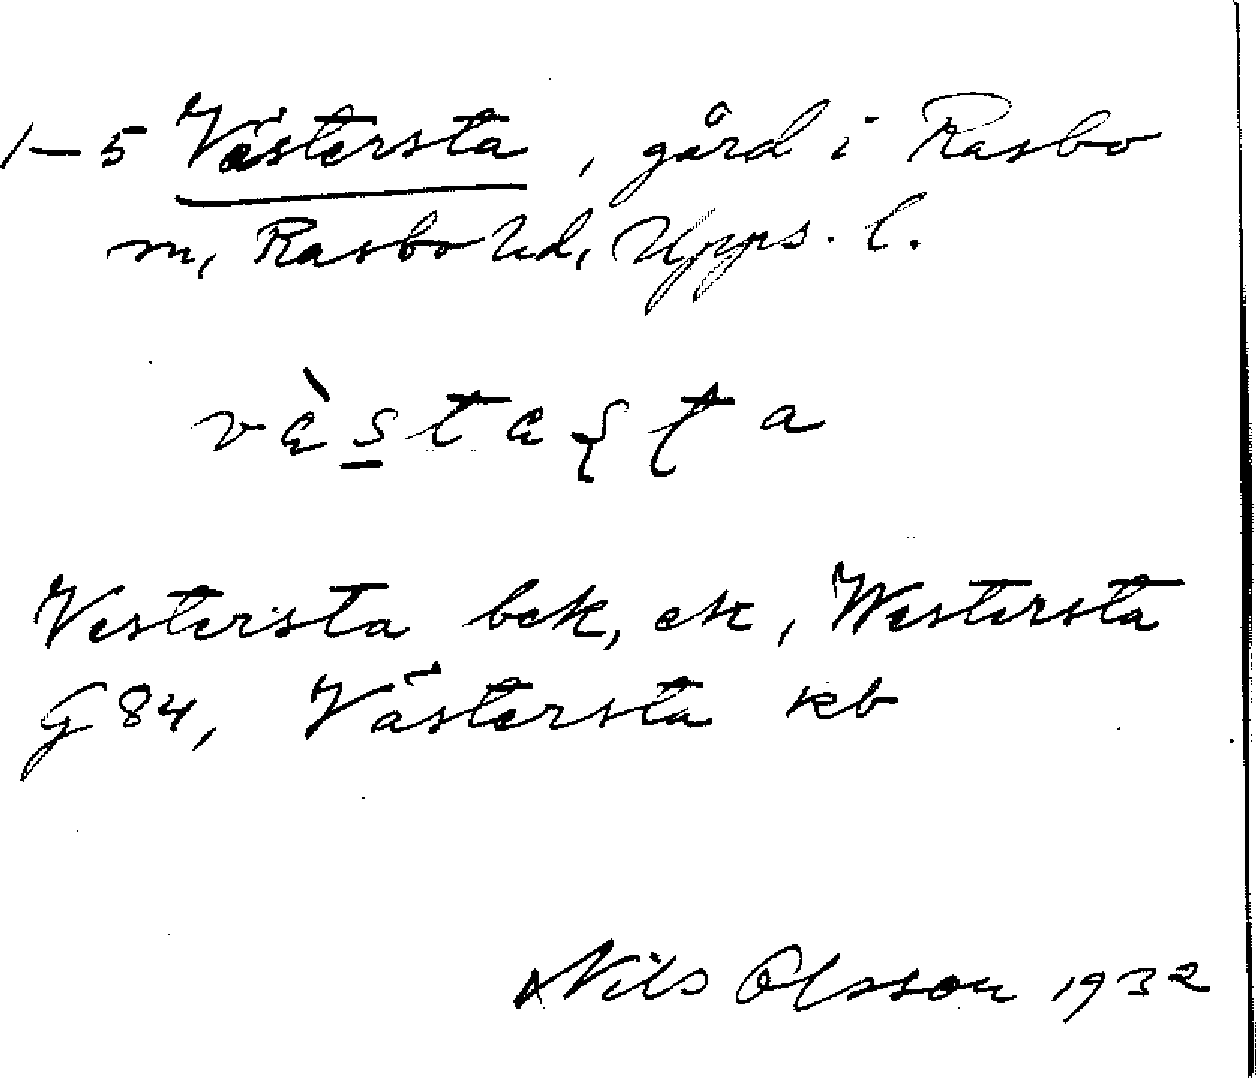 1–5 Västersta, gård i Rasbo
sn, Rasbo hd, Upps. l.
vɛ̀stɛʂʈa
Vestersta bek, ek, Westersta
G 84, Västersta kb
Nils Olsson 1932